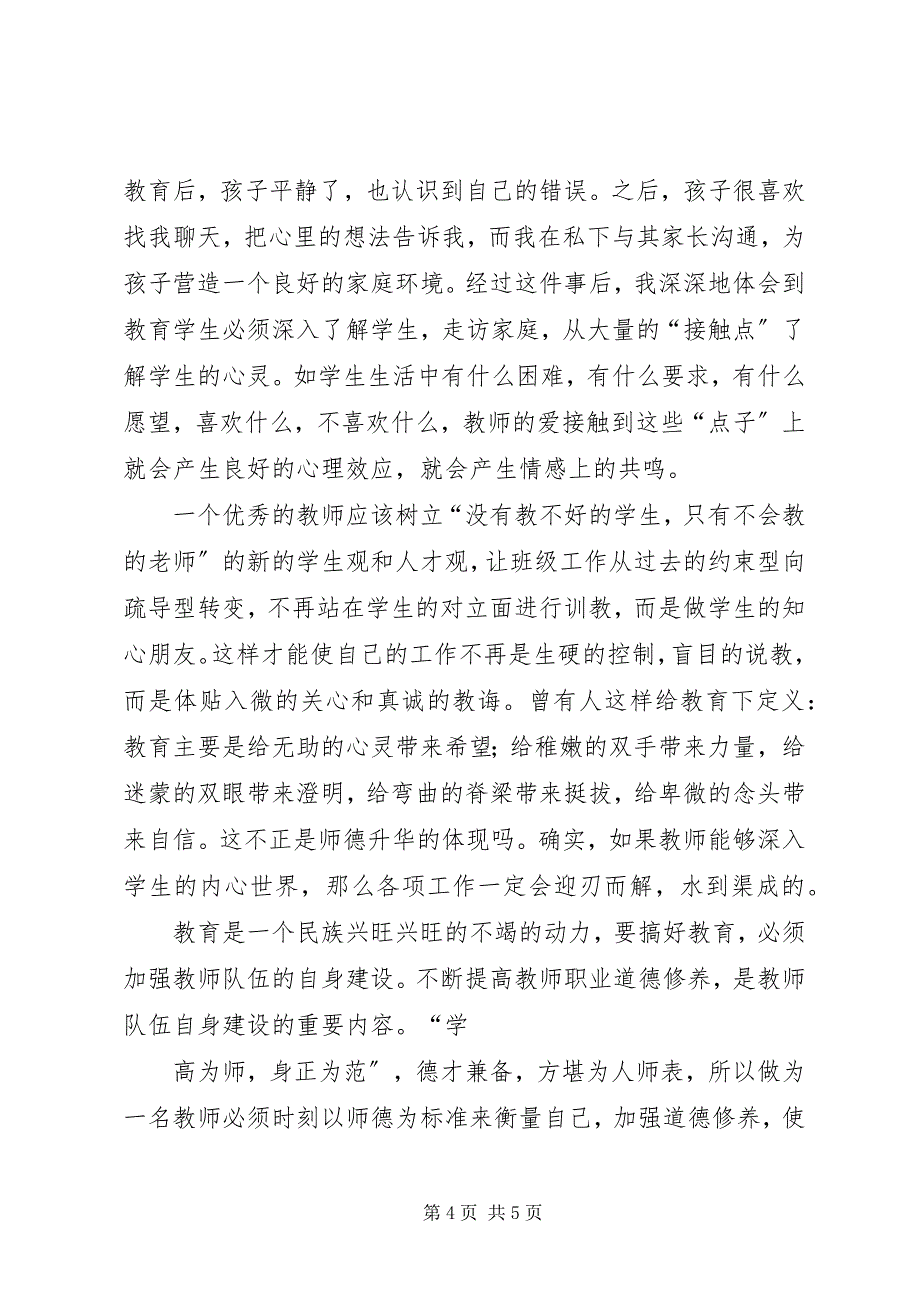 教育后，孩子平静了，也认识到自己的错误。之后，孩子很喜欢
找我聊天，把心里的想法告诉我，而我在私下与其家长沟通，为
孩子营造一个良好的家庭环境。经过这件事后，我深深地体会到
教育学生必须深入了解学生，走访家庭，从大量的“接触点〞了
解学生的心灵。如学生生活中有什么困难，有什么要求，有什么
愿望，喜欢什么，不喜欢什么，教师的爱接触到这些“点子〞上
就会产生良好的心理效应，就会产生情感上的共鸣。
一个优秀的教师应该树立“没有教不好的学生，只有不会教
的老师〞的新的学生观和人才观，让班级工作从过去的约束型向
疏导型转变，不再站在学生的对立面进行训教，而是做学生的知
心朋友。这样才能使自己的工作不再是生硬的控制，盲目的说教，
而是体贴入微的关心和真诚的教诲。曾有人这样给教育下定义：
教育主要是给无助的心灵带来希望；给稚嫩的双手带来力量，给
迷蒙的双眼带来澄明，给弯曲的脊梁带来挺拔，给卑微的念头带
来自信。这不正是师德升华的体现吗。确实，如果教师能够深入
学生的内心世界，那么各项工作一定会迎刃而解，水到渠成的。
教育是一个民族兴旺兴旺的不竭的动力，要搞好教育，必须
加强教师队伍的自身建设。不断提高教师职业道德修养，是教师
队伍自身建设的重要内容。“学
高为师，身正为范〞，德才兼备，方堪为人师表，所以做为
一名教师必须时刻以师德为标准来衡量自己，加强道德修养，使
第 4 页 共 5 页